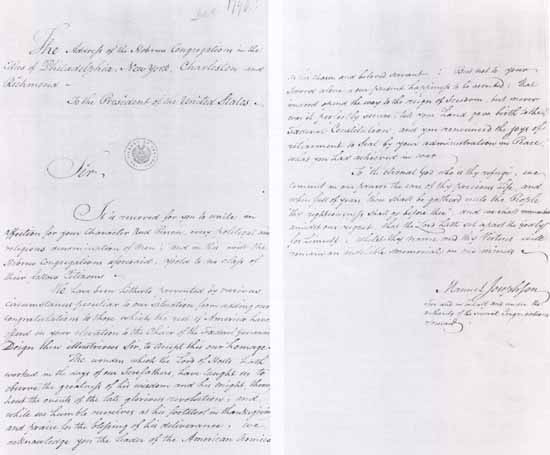 Dec 1790
The Address of the Hebrew Congregations in the
Cities of Philadelphia, New York, Charleston and
Richmond.
To the President of the United States.
Sir.
It is reserved for you to unite in
affection for your Character And Person, every political and
religious denomination of Men; and in this will the
Hebrew Congregations aforesaid, yield to no class of
their fellow Citizens.
We have been hitherto prevented by various
circumstances peculiar to our situation from adding our
congratulations to those which the rest of America have
offered on your elevation to the Chair of the Fœderal governmt.
Deign then illustrious Sir, to accept this our homage.
The wonders which the Lord of Hosts hath
worked in the days of our Forefathers, have taught us to
observe the greatness of his wisdom and his might, throughout
the events of the late glorious revolution; and
while we humble ourselves at his footstool in thanksgiving
and praise for the blessing of his deliverance; we
acknowledge you the Leader of the American Armies
as his chosen and beloved servant; But not to your
Sword alone is our present happiness to be ascribed; that
indeed opend the way to the reign of Freedom, but never
was it perfectly secure, till your hand gave birth to the
Fœderal Constitution, and you renounced the joys of
retirement to Seal by your administration in Peace,
what you had achieved in war.
To the eternal God who is thy refuge, we
commit in our prayers the care of thy precious Life, and
when full of years thou shalt be gathered unto the People
thy righteousness shall go before thee; and we shall remember
amidst our regret, that the Lord hath set apart the godly
for himself; whilst thy name and thy Virtues will
remain an indelible memorial on our minds.
Manuel Josephson
For and in behalf and under the
authority of the several Congregations
aforesaid.